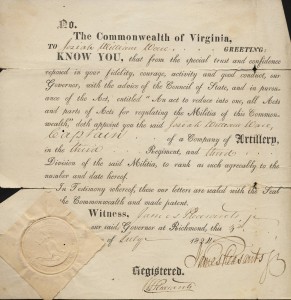 No.
The Commonwealth of Virginia,
TO Josiah William Ware GREETING:
KNOW YOU, that from the special trust and confidence
reposed in your fidelity, courage, activity and good conduct, our
Governor, with the advice of the Council of State, and in pursu-
ance of the Act, entitled "An act to reduce into one, all Acts
and parts of Acts for regulating the Militia of the Common-
wealth," doth appoint you the said Josiah William Ware,
Captain of a Company of Artillery,
in the third Regiment, and third
Division of the said Militia, to rank as such agreeably to the
number and date hereof.
In Testimony whereof, these our letters are sealed with the Seal
the Commonwealth and made patent.
Witness, James Pleasants, jr
our said Governor at Richmond, this
of July 182
James Pleasants jr
Registered.